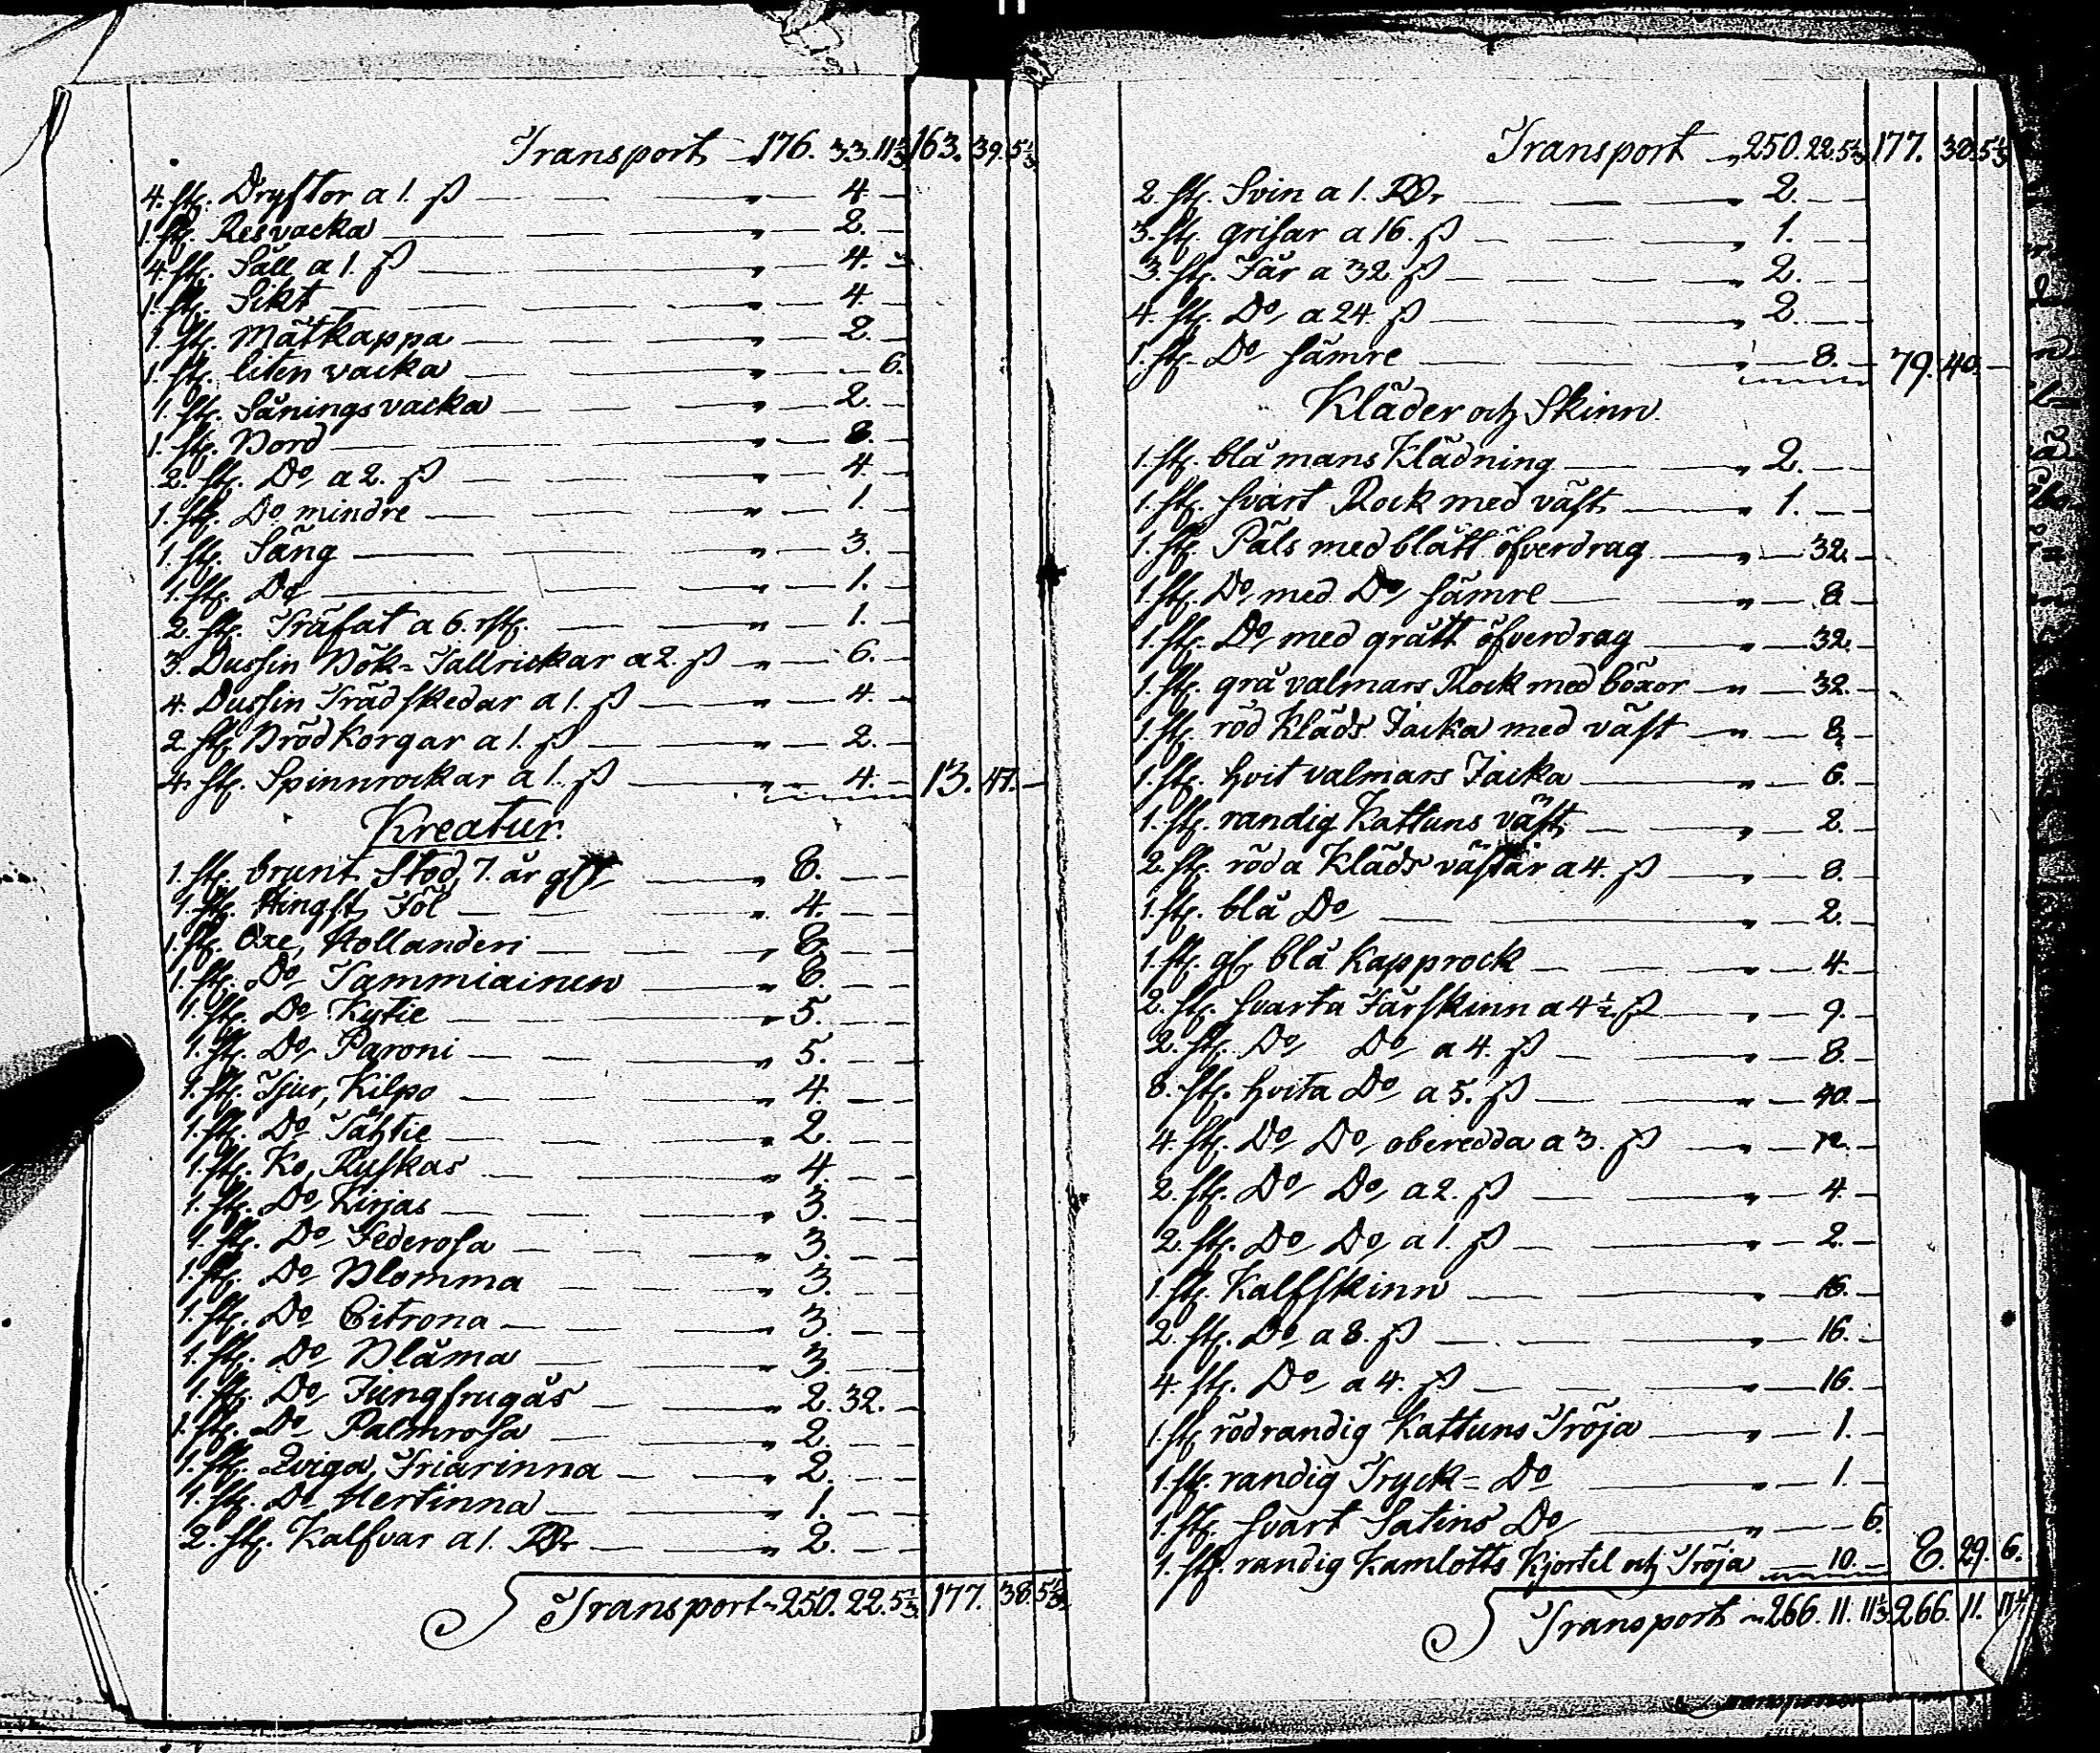 Transport „ 176. 33. 11⅓ 163. 39. 5⅓
4. st. Dryftor a 1. ß — „ — 4. —
1. st. Resvacka — „ — 2. —
4. st. Såll a 1. ß — „ — 4. —
1. st. Sikt — „ — 4. —
1. st. Mätkappa — „ — 2. —
1. st. liten vacka — „ — — 6.
1. st. Såningsvacka — „ — 2. —
1. st. Bord — „ — 8. —
2. st. Do a 2. ß — „ — 4. —
1. st. Do mindre — „ — 1. —
1. st. Säng — „ — 3. —
1. st. Do — „ — 1. —
2. st. Träfat a 6. rst. — „ — 1. —
3. Dussin Bök-Tallrickar a 2. ß — „ — 6. —
4. Dussin Trädskedar a 1. ß — „ — 4. —
2. st. Brödkorgar a 1. ß — „ — 2. —
4. st. Spinnrockar a 1. ß — „ — 4. — 13. 47. —
Kreatur.
1. st. brunt Stod, 7. år glt — 8. — —
1. st. Hingst Föl — „ 4. — —
1. st. Oxe, Hollanderi — „ 8. — —
1. st. Do Tammiainen — „ 6. — —
1. st. Do Kytie — „ 5. — —
1. st. Do Paroni — „ 5. — —
1. st. Tjur, Kilpo — „ 4. — —
1. st. Do Tähtie — „ 2. — —
1. st. Ko, Ruskas — „ 4. — —
1. st. Do Kirjas — „ 3. — —
1. st. Do Federosa — „ 3. — —
1. st. Do Blomma — „ 3. — —
1. st. Do Citrona — „ 3. — —
1. st. Do Blåma — „ 3. — —
1. st. Do Jungfrugås — „ 2. 32. —
1. st. Do Palmrosa — „ 2. — —
1. st. Qviga, Friarinna — „ 2. — —
1. st. Do Hertinna — „ 1. — —
2. st. Kalfvar a 1. Rdr — „ 2. — —
Transport „ 250. 22. 5⅓ 177. 38. 5⅓
Transport „ 250. 22. 5⅓ 177. 38. 5⅓
2. st. Svin a 1. Rdr — „ 2. — —
3. st. grisar a 16. ß — „ 1. — —
3. st. Får a 32 ß — „ 2. — —
4. st. Do a 24. ß — „ 2. — —
1. st. Do sämre — „ — 8. — 79. 40. —
Kläder och Skinn.
1. st. blå mans Klädning — „ 2. — —
1. st. svart Rock med väst — „ 1. — —
1. st. Päls med blått öfverdrag — „ — 32. —
1. st. Do med Do sämre — „ — 8. —
1. st. Do med grått öfverdrag — „ — 32. —
1. st. grå valmars Rock med böxor — „ — 32. —
1. st. röd kläds Jacka med väst — „ — 8. —
1. st. hvit valmars Jacka — „ — 6. —
1. st. randig Kattuns väst — „ — 2. —
2. st. röda kläds västar a 4. ß — „ — 8. —
1. st. blå Do — „ — 2. —
1. st. gl. blå kapprock — „ — 4. —
2. st. svarta Fårskinn a 4½ ß — „ — 9. —
2. st. Do Do a 4. ß — „ — 8. —
8. st. hvita Do a 5. ß — „ — 40. —
4. st. Do Do oberedda a 3. ß — „ — 12. —
2. st. Do Do a 2. ß — „ — 4. —
2. st. Do Do a 1. ß — „ — 2. —
1. st. Kalfskinn — „ — 16. —
2. st. Do a 8. ß — „ — 16. —
4. st. Do a 4. ß — „ — 16. —
1. st. rödrandig Kattuns Tröja — „ — 1. —
1. st. randig Tryck- Do — „ — 1. —
1. st. svart Satins Do — „ — — 6.
1. st. randig Kamlotts Kjortel och Tröja — 10. — 8. 29. 6.
Transport „ 266. 11. 11⅓ 266. 11. 11⅓